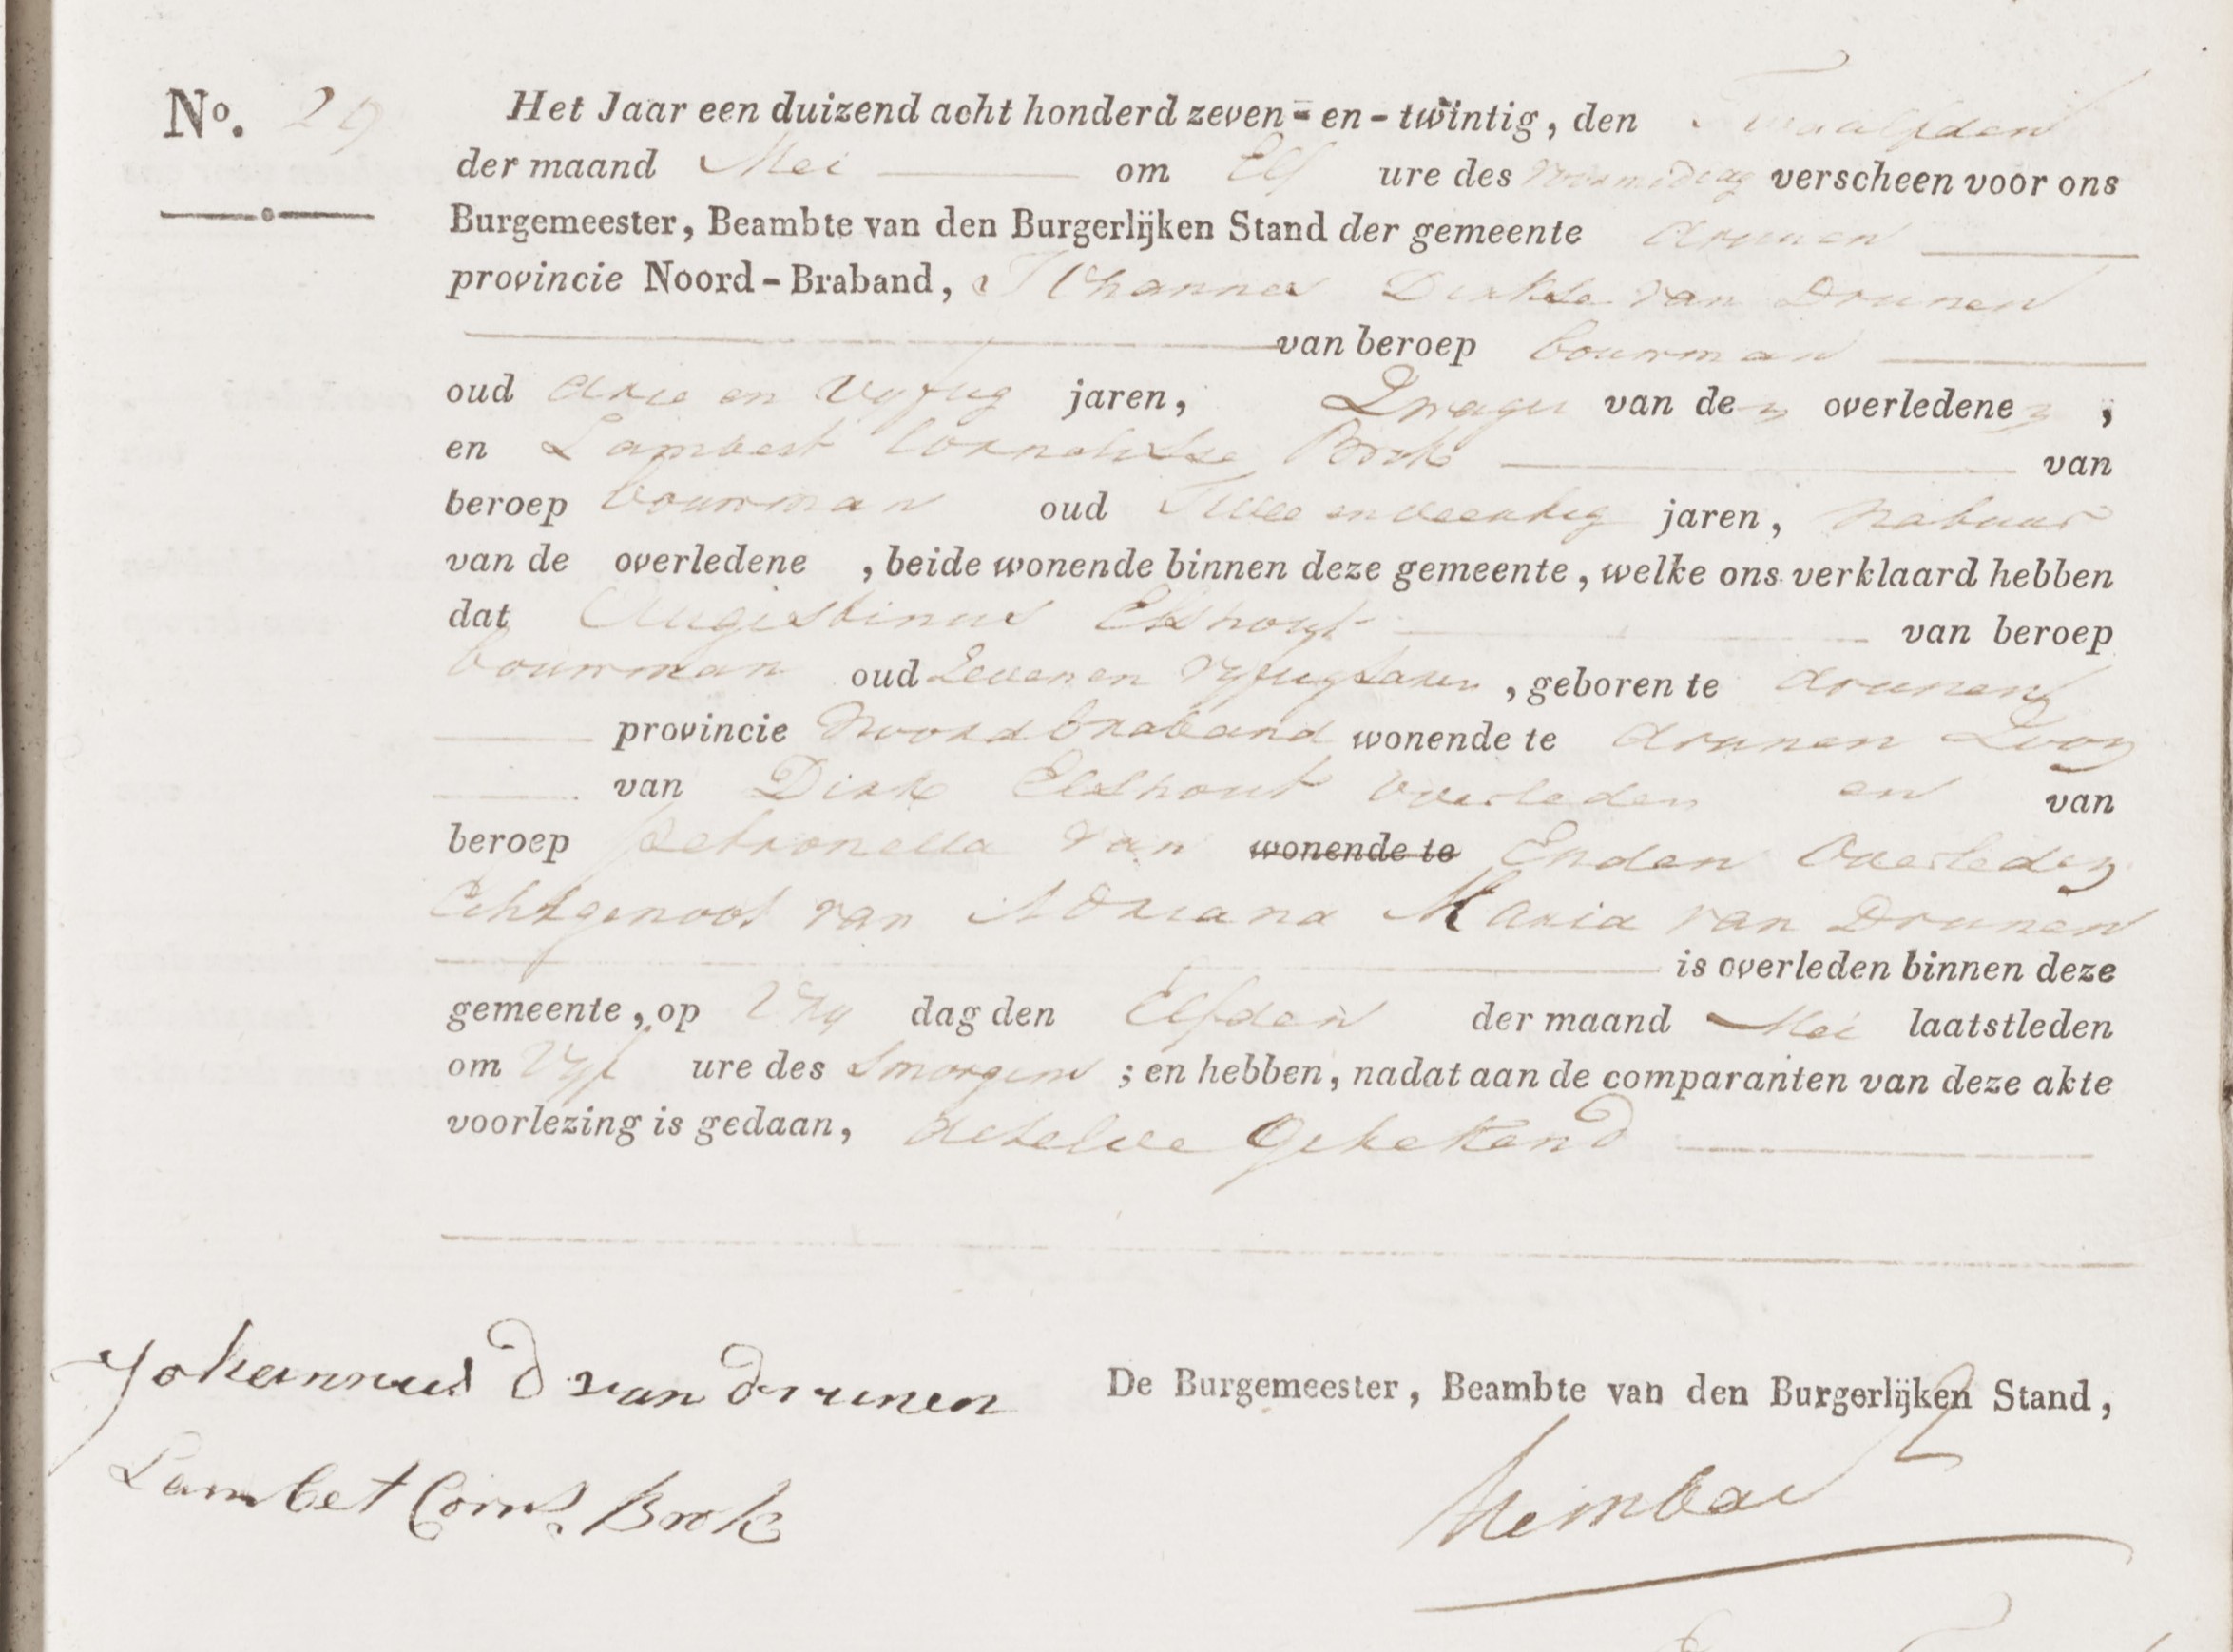 No. 29
Het Jaar een duizend acht honderd zeven-en-twintig, den Twaalfden
der maand Mei om Elf ure des voormidag verscheen voor ons
Burgemeester, Beambte van den Burgerlijken Stand der gemeente drunen
provincie Noord-Braband, Johannes Dirkse van Drunen
van beroep bouwman
oud drie en vyftig jaren, Zwager van den overledenen ,
en Lambert Cornelisse Brok van
beroep bouwman oud Twee en veertig jaren, nabuur
van de overledene , beide wonende binnen deze gemeente, welke ons verklaard hebben
dat Augistinus Elshout van beroep
bouwman oud Zeven en vyftig Jaren , geboren te drunen
provincie Noordbraband wonende te drunen Zoon
van Dirk Elshout overleden en van
beroep Petronella van wonende te Enden overleden
Echtgenoot van Adriana Maria van Drunen
is overleden binnen deze
gemeente, op Vry dag den Elfden der maand Mei laatstleden
om Vyf ure des Smorgens ; en hebben, nadat aan de comparanten van deze akte
voorlezing is gedaan, deselve getekend
Johannes D van drunen
De Burgemeester, Beambte van den Burgerlijken Stand,
Lambet Corns. Brok